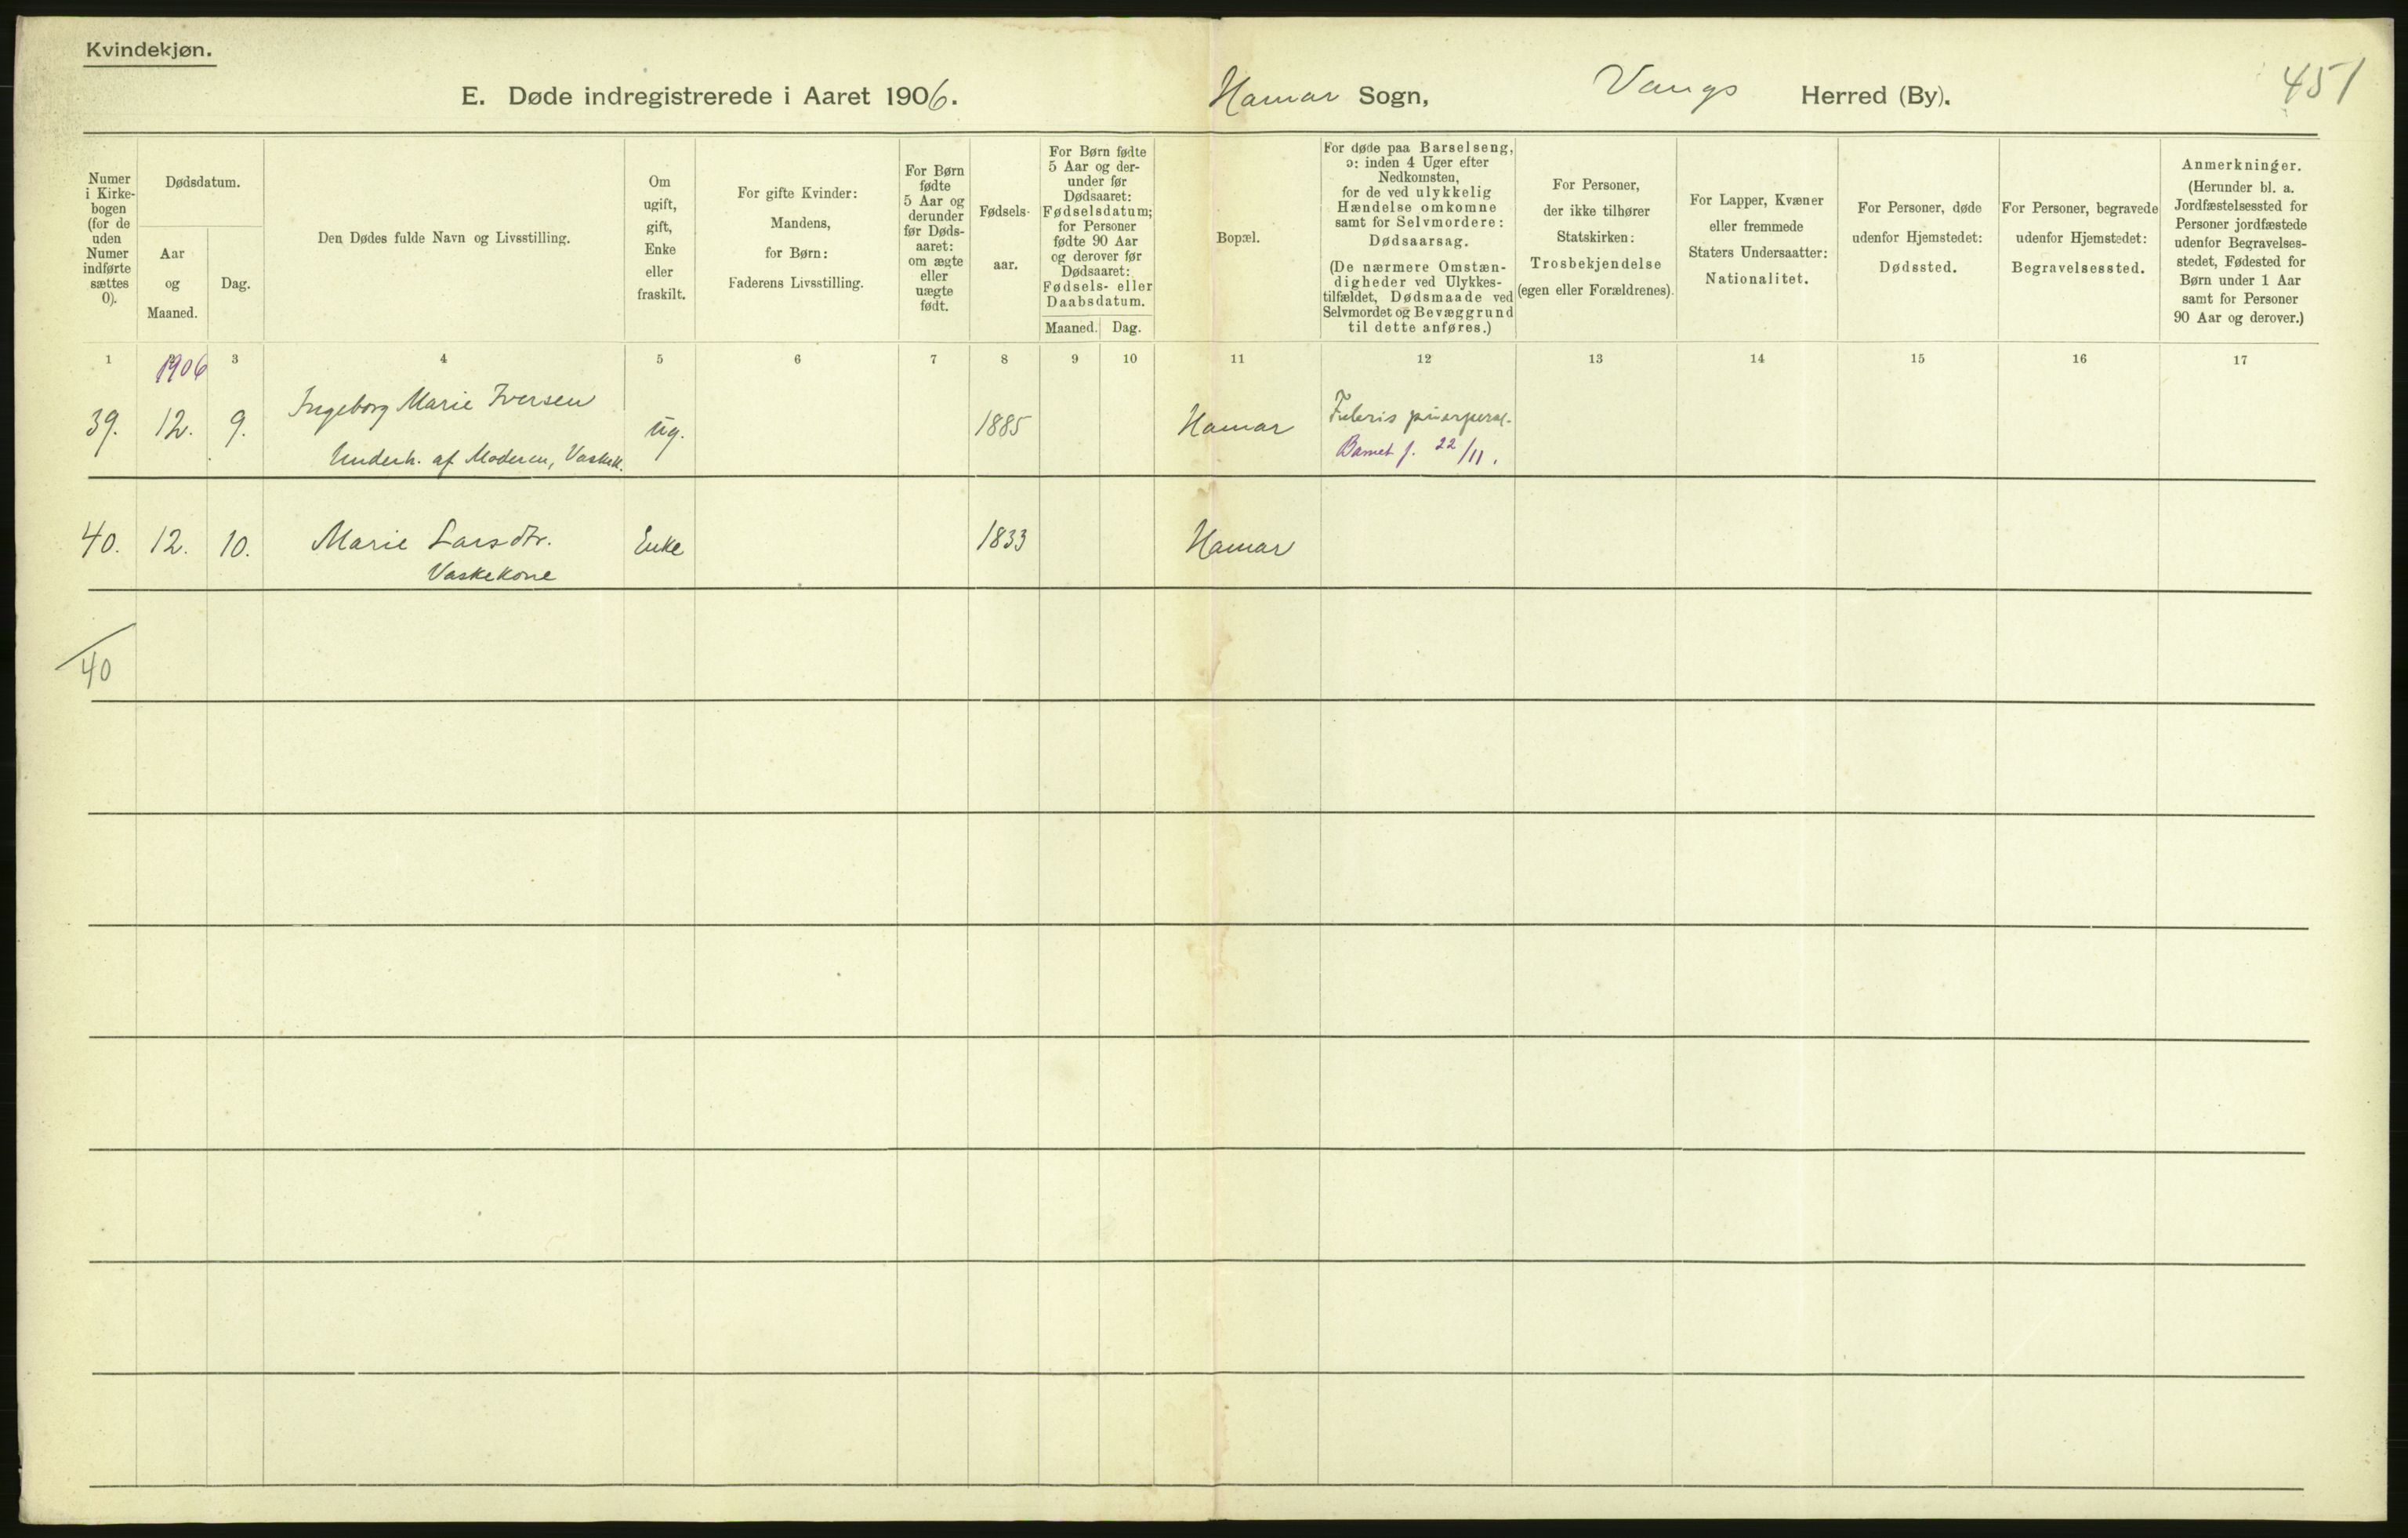 Kvindekjøn.
E. Døde indregistrerede i Aaret 1906.
Hamar Sogn,
Vangs Herred (By).
451
Numer
i Kirke-
bogen
(for de
uden
Numer
indførte
sættes
0).
Dødsdatum.
Aar
og
Maaned.
Dag.
Den Dødes fulde Navn og Livsstilling.
Om
ugift,
gift,
Enke
eller
fraskilt.
For gifte Kvinder:
Mandens,
for Børn:
Faderens Livsstilling.
For Børn
fødte
5 Aar og
derunder
før Døds-
aaret:
om ægte
eller
uægte
født.
Fødsels-
aar.
For Børn fødte
5 Aar og der-
under før
Dødsaaret:
Fødselsdatum;
for Personer
fødte 90 Aar
og derover før
Dødsaaret:
Fødsels- eller
Daabsdatum.
Maaned. Dag.
Bopæl.
For døde paa Barselseng,
ɔ: inden 4 Uger efter
Nedkomsten,
for de ved ulykkelig
Hændelse omkomne
samt for Selvmordere:
Dødsaarsag.
(De nærmere Omstæn-
digheder ved Ulykkes-
tilfældet, Dødsmaade ved
Selvmordet og Bevæggrund
til dette anføres.)
For Personer,
der ikke tilhører
Statskirken:
Trosbekjendelse
(egen eller Forældrenes).
For Lapper, Kvæner
eller fremmede
Staters Undersaatter:
Nationalitet.
For Personer, døde
udenfor Hjemstedet:
Dødssted.
For Personer, begravede
udenfor Hjemstedet:
Begravelsessted.
Anmerkninger.
(Herunder bl. a.
Jordfæstelsessted for
Personer jordfæstede
udenfor Begravelses-
stedet, Fødested for
Børn under 1 Aar
samt for Personer
90 Aar og derover.)
1 3 4 5 6 7 8 9 10 11 12 13 14 15 16 17
1906
39. 12. 9. Ingeborg Marie Iversen ug. 1885 Hamar
Underh. af Moderen, Vaskek.
Barnet f. 22/11.
40. 12. 10. Marie Larsdtr. Enke 1833 Hamar
Vaskekone
40